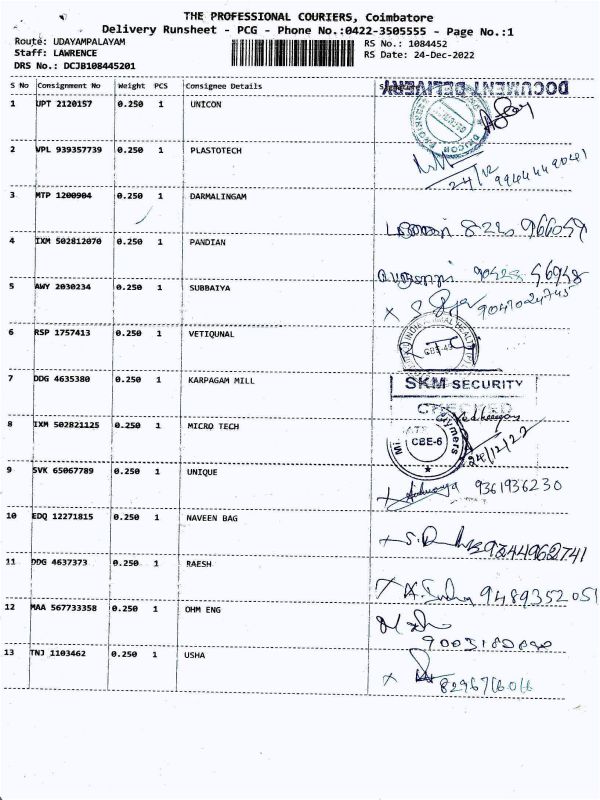 THE PROFESSIONAL COURIERS, Coimbatore
Delivery Runsheet - PCG - Phone No.:0422-3505555 - Page No.:1
Route: UDAYAMPALAYAM RS No.: 1084452
Staff: LAWRENCE RS Date: 24-Dec-2022
DRS No.: DCJB108445201
S No Consignment No Weight PCS Consignee Details
DOCUMENT DELIVERY
1 UPT 2120157 0.250 1 UNICON
2 VPL 939357739 0.250 1 PLASTOTECH
24/12 9944449041
3 MTP 1200904 0.250 1 DARMALINGAM
4 IXM 502812070 0.250 1 PANDIAN
5 AWY 2030234 0.250 1 SUBBAIYA
9047024745
6 RSP 1757413 0.250 1 VETIQUNAL
7 DDG 4635380 0.250 1 KARPAGAM MILL SKM SECURITY
8 IXM 502821125 0.250 1 MICRO TECH CBE-6
24/12/22
9 SVK 65067789 0.250 1 UNIQUE 9361936230
10 EDQ 12271815 0.250 1 NAVEEN BAG
11 DDG 4637373 0.250 1 RAESH 9489352051
12 MAA 567733358 0.250 1 OHM ENG
13 TNJ 1103462 0.250 1 USHA
8296716066